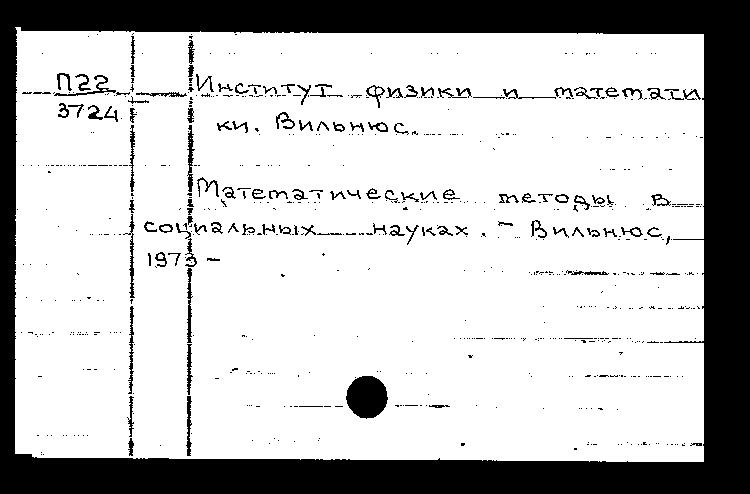 П22 Институт физики и математи
3724 ки. Вильнюс.
Математические методы в
социальных науках. - Вильнюс,
1973 -